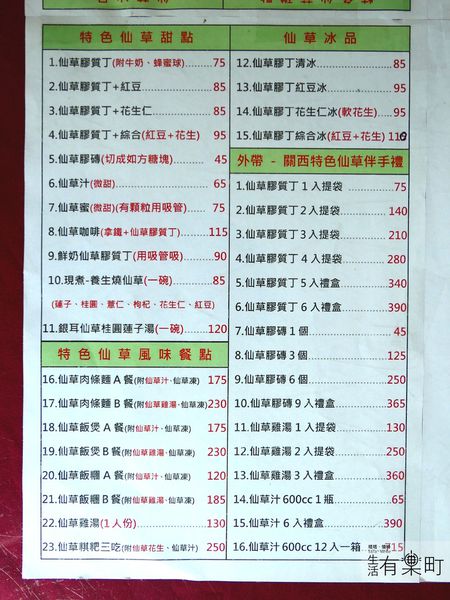 特色仙草甜點
1.仙草膠質丁(附牛奶、蜂蜜球)......75
2.仙草膠質丁+紅豆......85
3.仙草膠質丁+花生仁......85
4.仙草膠質丁+綜合(紅豆+花生) 95
5.仙草膠磚(切成如方糖塊)......45
6.仙草汁(微甜)......65
7.仙草蜜(微甜)(有顆粒用吸管)......75
8.仙草咖啡(拿鐵+仙草膠質丁)......115
9.鮮奶仙草膠質丁(用吸管吸)......90
10.現煮-養生燒仙草(一碗)......85
(蓮子、桂圓、薏仁、枸杞、花生仁、紅豆)
11.銀耳仙草桂圓蓮子湯(一碗)......120
特色仙草風味餐點
16.仙草肉條麵A餐(附仙草汁、仙草凍) 175
17.仙草肉條麵B餐(附仙草雞湯、仙草凍) 230
18.仙草飯煲A餐(附仙草汁、仙草凍) 175
19.仙草飯煲B餐(附仙草雞湯、仙草凍) 230
20.仙草飯糰A餐(附仙草汁、仙草凍) 120
21.仙草飯糰B餐(附仙草雞湯、仙草凍) 185
22.仙草雞湯(1人份)......130
23.仙草粄粑三吃(附仙草花生、仙草汁) 250
仙草冰品
12.仙草膠丁清冰......85
13.仙草膠丁紅豆冰......95
14.仙草膠丁花生仁冰(軟花生)......95
15.仙草膠丁綜合冰(紅豆+花生) 110
外帶 - 關西特色仙草伴手禮
1.仙草膠質丁1入提袋......75
2.仙草膠質丁2入提袋......140
3.仙草膠質丁3入提袋......210
4.仙草膠質丁4入提袋......280
5.仙草膠質丁5入禮盒......340
6.仙草膠質丁6入禮盒......390
7.仙草膠磚1個......45
8.仙草膠磚3個......125
9.仙草膠磚6個......250
10.仙草膠磚9入禮盒......365
11.仙草雞湯1入提袋......130
12.仙草雞湯2入提袋......250
13.仙草雞湯3入禮盒......360
14.仙草汁600cc 1瓶......65
15.仙草汁6入禮盒......390
16.仙草汁600cc 12入一箱
生活
有樂町